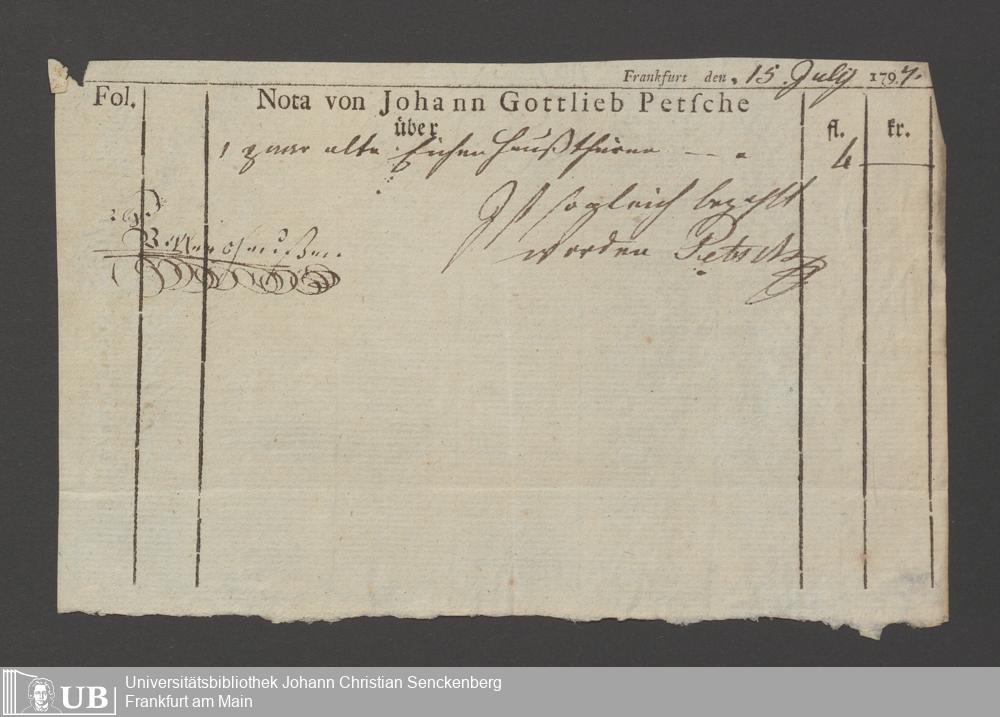 Frankfurt den 15 July 1797.
Fol. Nota von Johann Gottlieb Petſche
über fl. kr.
1 paar alte Eichen Haußthüren — 4 —
Ist sogleich bezahlt
worden Petsch
Universitätsbibliothek Johann Christian Senckenberg
Frankfurt am Main
UB